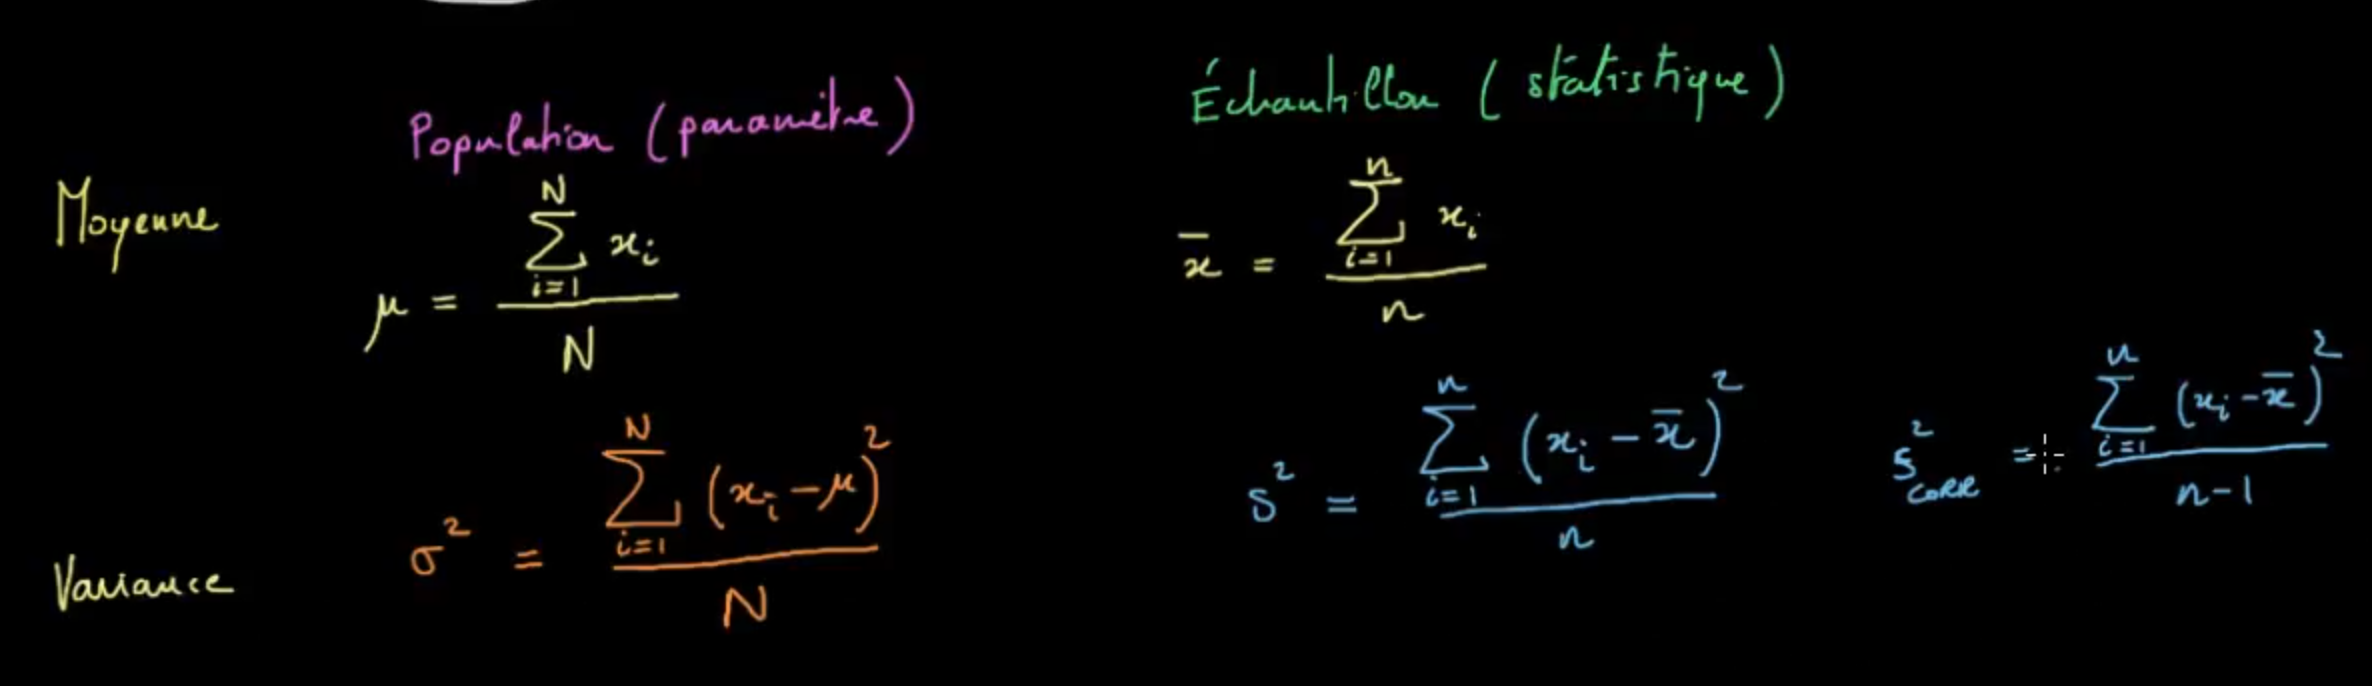 Population (paramètre)
Échantillon (statistique)
Moyenne
μ = \frac{\sum_{i=1}^{N} x_i}{N}
\overline{x} = \frac{\sum_{i=1}^{n} x_i}{n}
Variance
σ^2 = \frac{\sum_{i=1}^{N} (x_i - μ)^2}{N}
S^2 = \frac{\sum_{i=1}^{n} (x_i - \overline{x})^2}{n}
S^2_{CORR} = \frac{\sum_{i=1}^{n} (x_i - \overline{x})^2}{n-1}